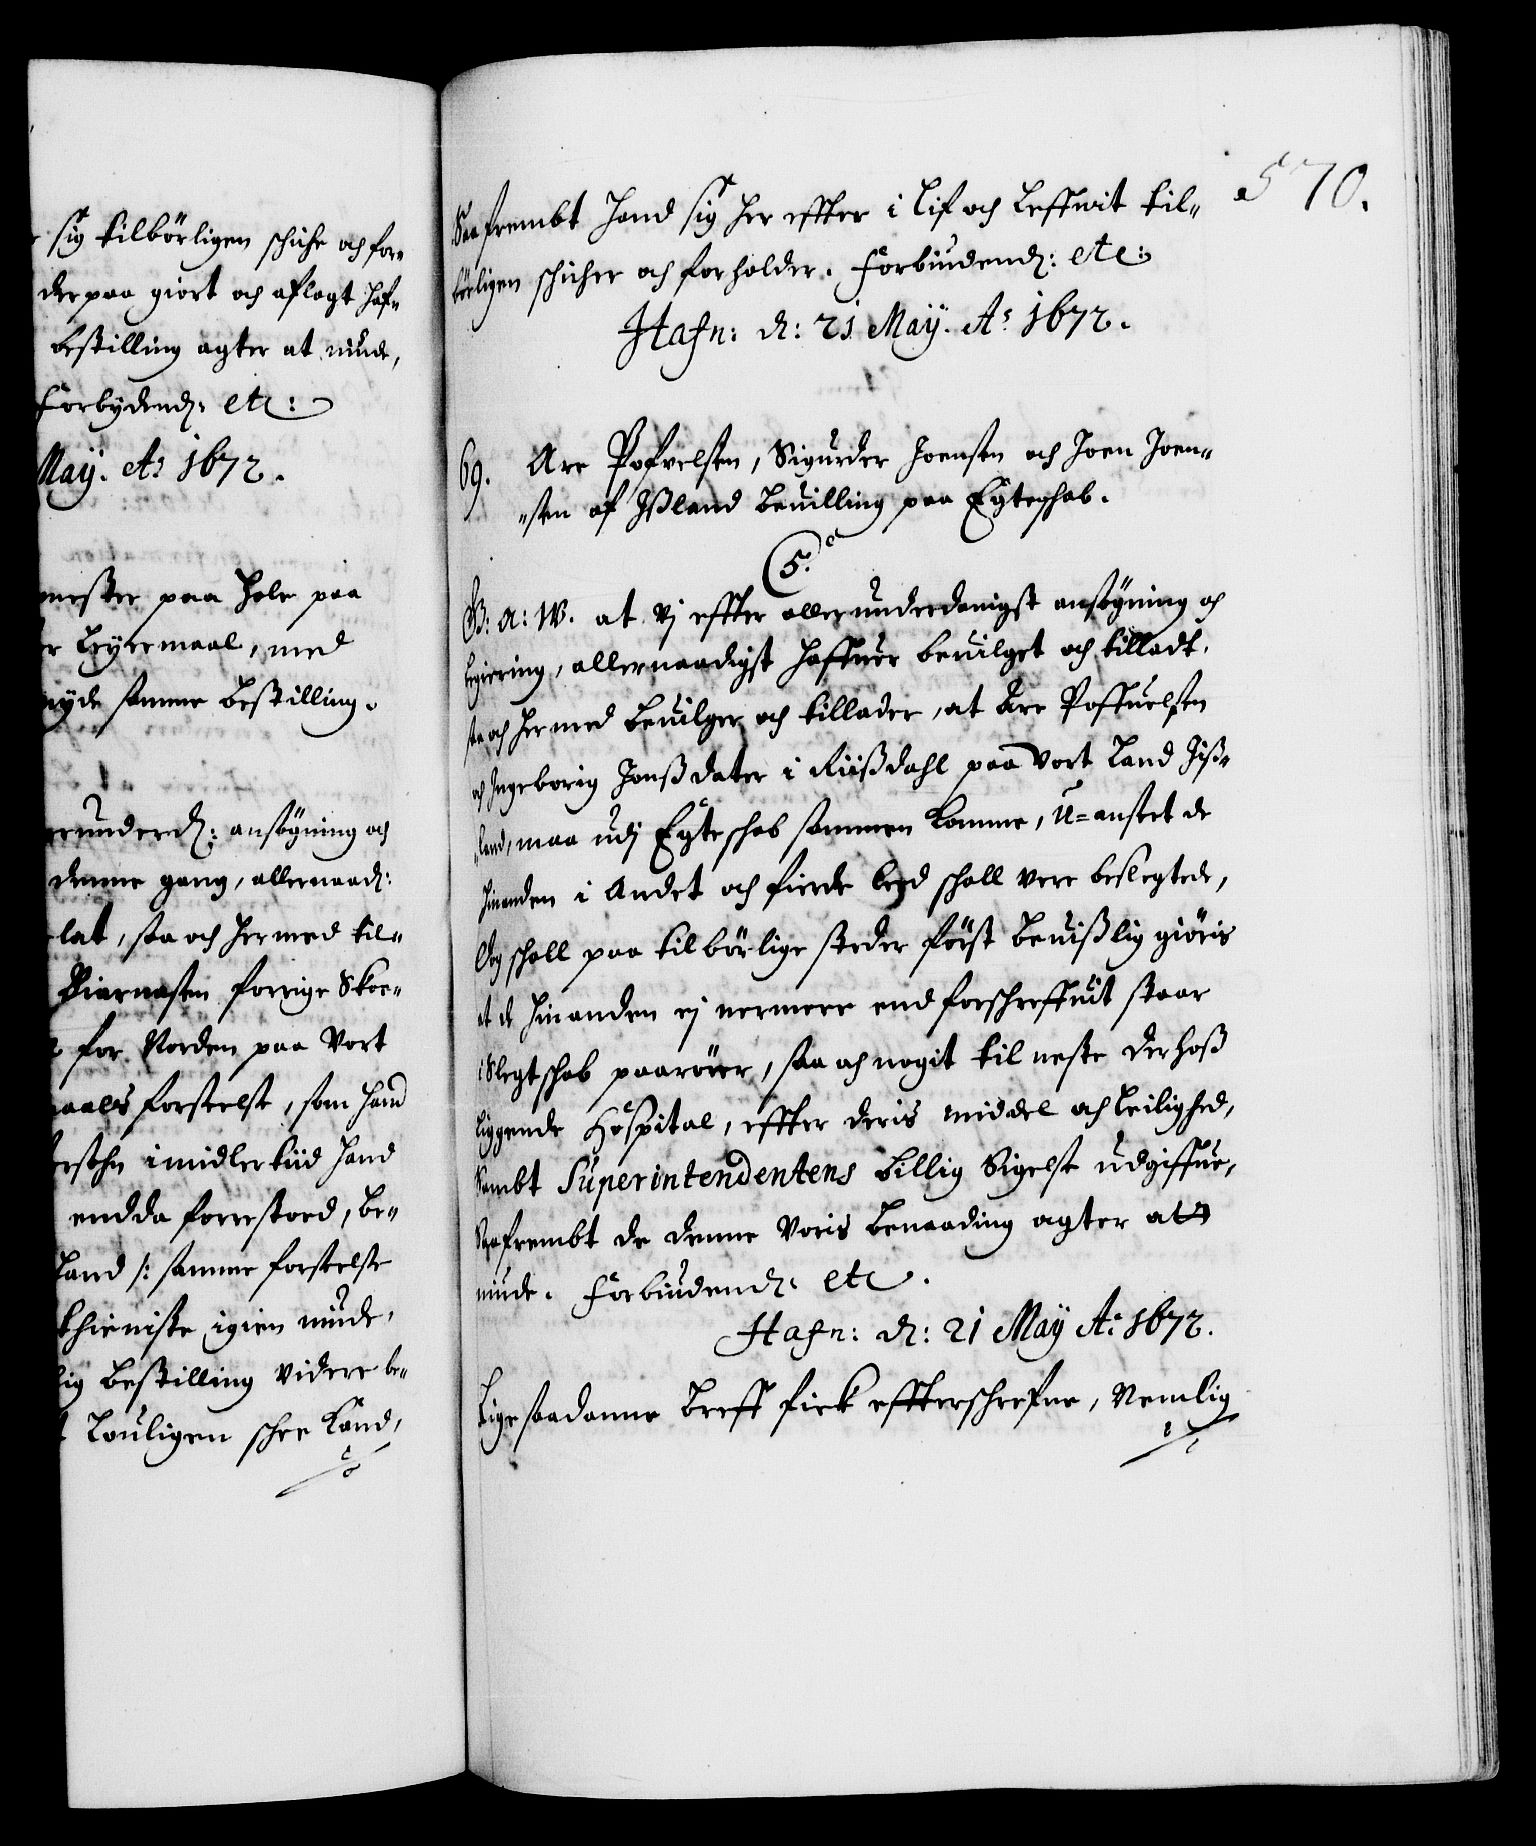 sig tilbörligen schiche och for-
derpaa giort och aflagt haf-
bestilling agter at niude,
Forbydend: etc:
May. Ao 1672.
mester paa Hole paa
Leyermaal, med
nyde samme bestilling.
erunderd: ansögning och
denne gang, allernaad:
lat, saa och hermed til-
Biarnesen forrige Skoe-
for Norden paa Vort
maals forseelse, som hand
ersohn imidlertiid hand
endda forrestoed, be-
hand /: samme forseelse
thieniste igien niude,
lig bestilling videre be-
Louligen schee kand,
570.
Saafrembt hand sig her effter i Lif och Leffnit til-
börligen schicher och forholder. Forbiudend: etc:
Hafn: d: 21 May. Ao 1672.
69. Are Pofvelsen, Sigurder Joensen och Joen Joen-
-sen af Ißland bevilling paa Egteschab.
5.
G: A: W. at Vj effter allerunderdanigst ansögning och
begiering, allernaadigst haffuer bevilget och tilladt,
saa och hermed bevilger och tillader, at Are Poffuelsen
och Ingeborig Jonßdater i Riißdahl paa Vort Land Iiß-
-land, maa udj Egteschab sammen komme, U=anseet de
hinanden i Andet och fierde leed schall vere beslegtede,
Dog schall paa tilbörlige steder först bevißlig giöris
at de hinanden ej nermere end forschreffuit staar
i Slegtschab paarörer, saa och nogit til neste derhoß
liggende Hospital, effter deris middel och Leilighed,
Sambt Superintendentens billig Sigelse udgiffue,
Saafrembt de denne Voris benaading agter att
niude. Forbiudend: etc.
Hafn: d: 21 May Ao 1672.
Lige saadanne breff fick effterschrefne, Nemlig